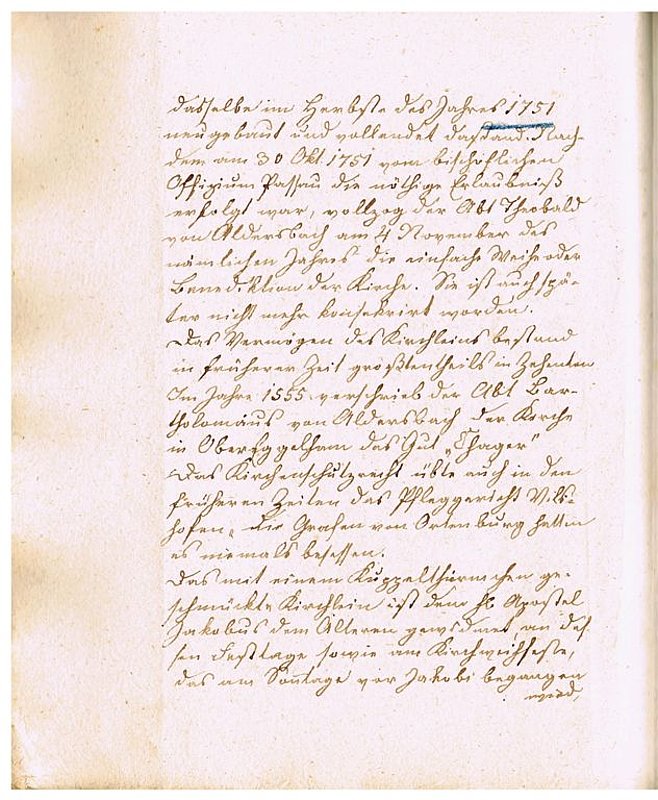 dasselbe im Herbste des Jahres 1751
neugebaut und vollendet dastand. Nach-
dem am 30 Okt. 1751 vom bischöflichen
Offizium Passau die nöthige Erlaubniß
erfolgt war, vollzog der Abt Theobald
von Aldersbach am 4 November des
nämlichen Jahres die einfache Weihe oder
Benediktion der Kirche. Sie ist auch spä-
ter nicht mehr konsekrirt worden.
Das Vermögen des Kirchleins bestand
in früherer Zeit größtentheils in Zehenten
Im Jahre 1555 verschrieb der Abt Bar-
tholomäus von Aldersbach der Kirche
in Oberegglham das Gut „Thager"
Das Kirchenschutzrecht übte auch in den
früheren Zeiten das Pfleggericht Vils-
hofen, die Grafen von Ortenburg hatten
es niemals besessen.
Das mit einem Kuppelthürmchen ge-
schmückte Kirchlein ist dem hl Apostel
Jakobus dem Älteren gewidmet, an des-
sen Festtage sowie am Kirchweihfeste,
das am Sonntage vor Jakobi begangen
wird,